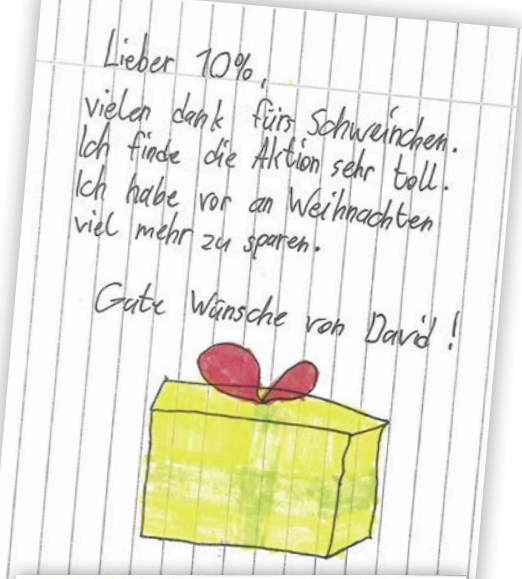 Lieber 10%,
vielen dank fürs Schweinchen.
Ich finde die Aktion sehr toll.
Ich habe vor an Weihnachten
viel mehr zu sparen.
Gute Wünsche von David!